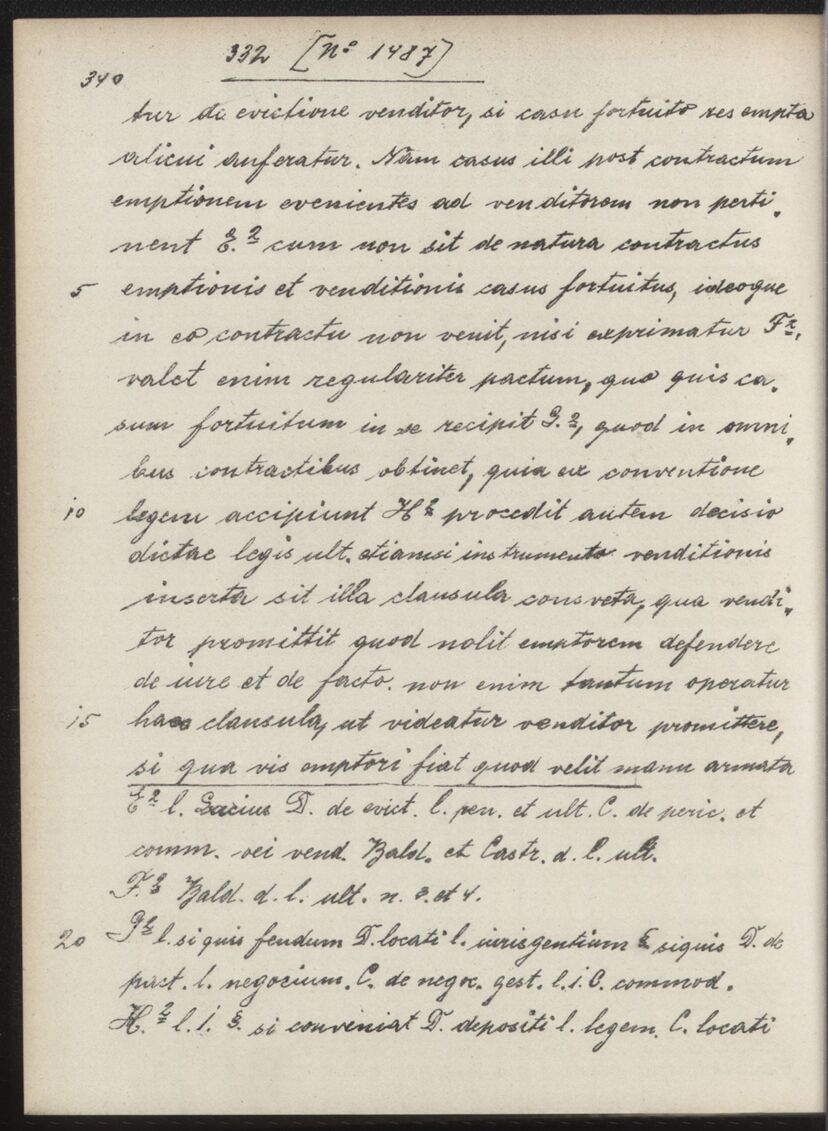 332 [Nº 1487]
340
tur de evictione venditor, si casu fortuito res empta
alicui auferatur. Nam casus illi post contractum
emptionem evenientes ad venditorem non perti-
nent E.2 cum non sit de natura contractus
5 emptionis et venditionis casus fortuitus, ideoque
in eo contractu non venit, nisi exprimatur F2.
valet enim regulariter pactum, quo quis ca-
sum fortuitum in se recipit G.2, quod in omni-
bus contractibus obtinet, quia ex conventione
10 legem accipiunt H2 procedit autem decisio
dictae legis ult. etiamsi instrumento venditionis
inserta sit illa clausula consveta, qua vendi-
tor promittit quod nolit emptorem defendere
de iure et de facto. non enim tantum operatur
15 haec clausula, ut videatur venditor promittere,
si qua vis emptori fiat quod velit manu armata
E2 l. Lucius D. de evict. l. pen. et ult. C. de peric. et
comm. rei vend. Bald. et Castr. d. l. ult.
F.2 Bald. d. l. ult. n. 3. et 4.
20 G2 l. si quis fundum D. locati l. iurisgentium § siquis D. de
pact. l. negocium. C. de negoc. gest. l. i. C. commod.
H.2 l. 1. §. si conveniat D. depositi l. legem. C. locati